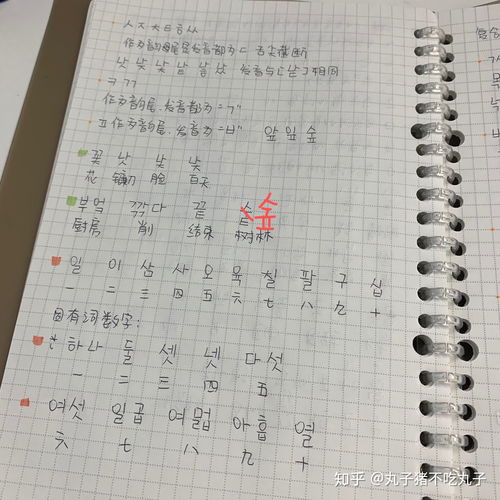 人ㅈㅊㅌㅎㅆ
作为音的尾音发音都为ㄷ 舌尖横断
낫 낮 낯 낱 낳 났 发音与[낟]相同
ㅋㄲㄱ
作为音的尾,发音都为="ㄱ"
ㅍ作为音的尾,发音为="ㅂ" 앞 잎 숲
꽃 낫 낯 낮
花 镰刀 脸 白天
부엌 깎다 끝 숲
厨房 削 结束 树林
일 이 삼 사 오 육 칠 팔 구 십
一 二 三 四 五 六 七 八 九 十
固有词数字:
하나 둘 셋 넷 다섯
一 二 三 四 五
여섯 일곱 여덟 아홉 열
六 七 八 九 十
知乎 @丸子猪不吃丸子